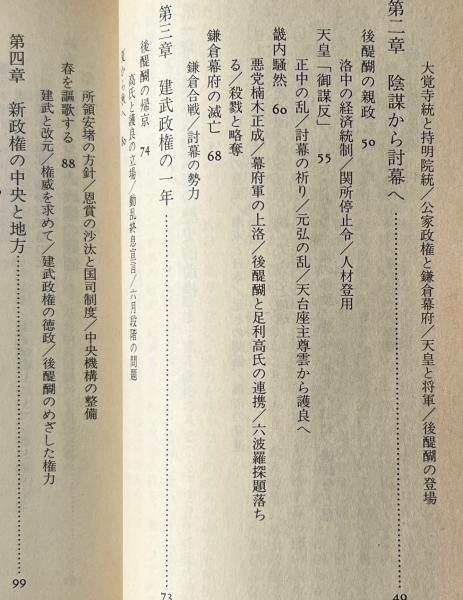 大覚寺統と持明院統／公家政権と鎌倉幕府／天皇と将軍／後醍醐の登場
第二章　陰謀から討幕へ……………………49
後醍醐の親政　50
洛中の経済統制／関所停止令／人材登用
天皇「御謀反」　55
正中の乱／討幕の祈り／元弘の乱／天台座主尊雲から護良へ
畿内騒然　60
悪党楠木正成／幕府軍の上洛／後醍醐と足利高氏の連携／六波羅探題落ち
る／殺戮と略奪
鎌倉幕府の滅亡　68
鎌倉合戦／討幕の勢力
第三章　建武政権の一年……………………73
後醍醐の帰京　74
高氏と護良の立場／動乱終息宣言／六月段階の問題
所領安堵の方針／恩賞の沙汰と国司制度／中央機構の整備
春を謳歌する　88
建武と改元／権威を求めて／建武政権の徳政／後醍醐のめざした権力
第四章　新政権の中央と地方……………………99